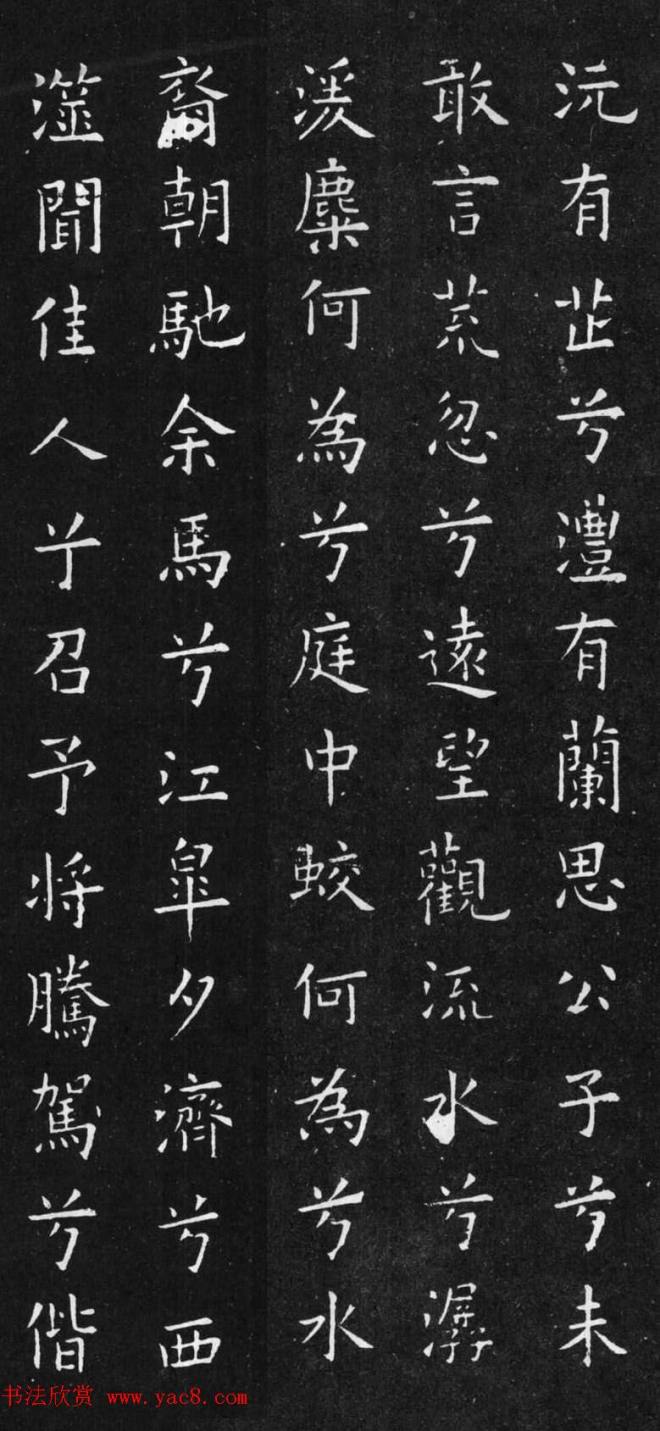 沅有芷兮澧有蘭思公子兮未
敢言荒忽兮遠望觀流水兮潺
湲麋何為兮庭中蛟何為兮水
裔朝馳余馬兮江皋夕濟兮西
澨聞佳人兮召予將騰駕兮偕
书法欣赏 www.yac8.com